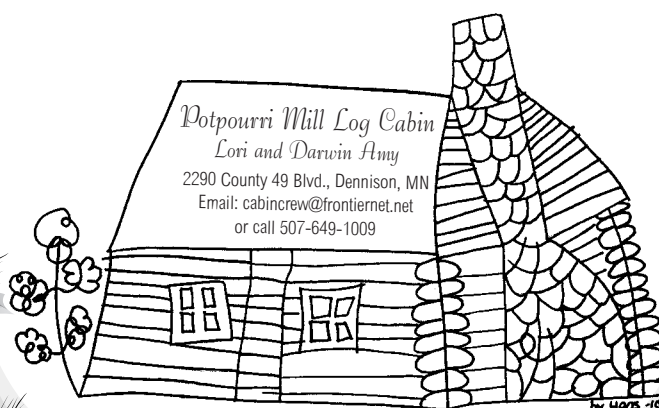 Potpourri Mill Log Cabin
Lori and Darwin Amy
2290 County 49 Blvd., Dennison, MN
Email: cabincrew@frontiernet.net
or call 507-649-1009
by Hans